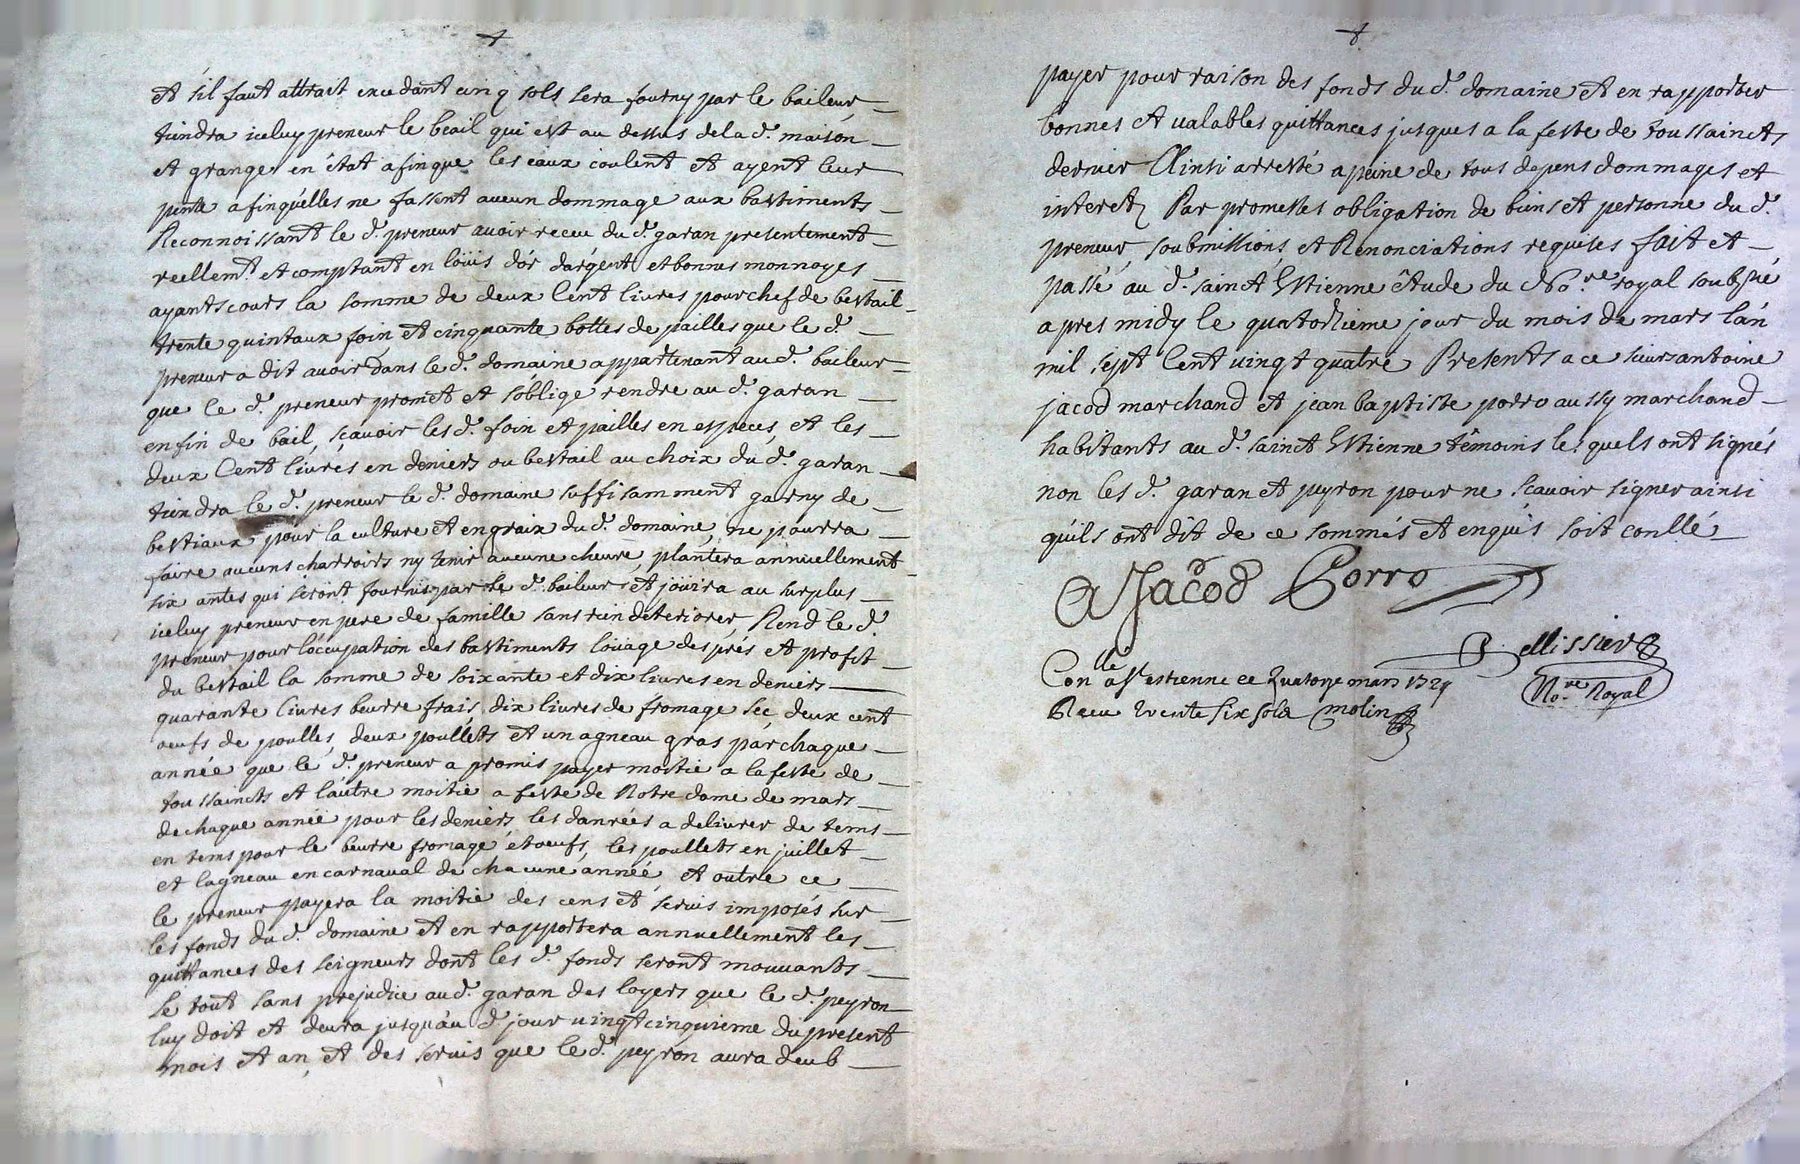 Et s'il faut attrait excedant cinq sols sera fourny par le baileur
tiendra iceluy preneur le beail qui est au dessus de la d. maison
et granges en état afin que les eaux coulent et ayent leur
pente afin qu'elles ne fassent aucun dommage aux bastiments
Reconnoissant le d. preneur avoir receu du d. garan presentement
reellemt. et comptant en loüis d'or d'argent et bonnes monnoyes
ayants cours la somme de deux Cent livres pour chef de bestail
trente quintaux foin et cinquante bottes de pailles que le d.
preneur a dit avoir dans le d. domaine appartenant au d. baileur
que le d. preneur promet et s'oblige rendre au d. garan
en fin de bail, sçavoir les d. foin et pailles en especes, et les
deux Cent livres en deniers ou bestail au choix du d. garan
tiendra le d. preneur le d. domaine suffisamment garny de
bestiaux pour la culture et engraix du d. domaine, ne pourra
faire aucuns charroirs ny tenir aucune chevre, plantera annuellement
six antes qui seront fournis par le d. baileur et joüira au surplus
iceluy preneur en pere de famille sans rien deteriorer, Rend le d.
preneur pour l'occupation des bastiments loüage des prés et profit
du bestail la somme de soixante et dix livres en deniers
quarante livres beurre frais, dix livres de fromage sec, deux cent
oeufs de poulles, deux poullets et un agneau gras par chaque
année que le d. preneur a promis payer moitié a la feste de
toussaincts et l'autre moitié a feste de Notre dame de mars
de chaque année pour les deniers, les danrées a delivrer de tems
en tems pour le beurre fromage et oeufs, les poullets en juillet
et lagneau en carnaval de chacune année, et outre ce
le preneur payera la moitié des cens et servis imposés sur
les fonds du d. domaine et en rapportera annuellement les
quittances des seigneurs dont les d. fonds seront mouvants
Le tout sans prejudice au d. garan des loyers que le d. peyron
luy doit et devra jusqu'au d. jour vingt cinquieme du present
mois et an, et des servis que le d. peyron aura deub
payer pour raison des fonds du d. domaine et en rapporter
bonnes et valables quittances jusques a la feste de toussaincts
dernier Ainsi arresté a peine de tous depens dommages et
interets Par promesses obligation de biens et personne du d.
preneur, soubmissions, et Renonciations requises fait et
passé au d. sainct Estienne étude du No.re royal soubsné
apres midy le quatorzieme jour du mois de mars l'an
mil sept Cent vingt quatre Presents a ce sieurs antoine
jacod marchand et jean baptiste porro aussy marchand
habitants au d. sainct Estienne témoins lesquels ont signés
non les d. garan et peyron pour ne sçavoir signer ainsi
qu'ils ont dit de ce sommés et enquis soit conllé
A Jacod Porro
Pellissier
No.re Royal
Conlle a St estienne ce Quatorze mars 1724
Receu trente six sols molin